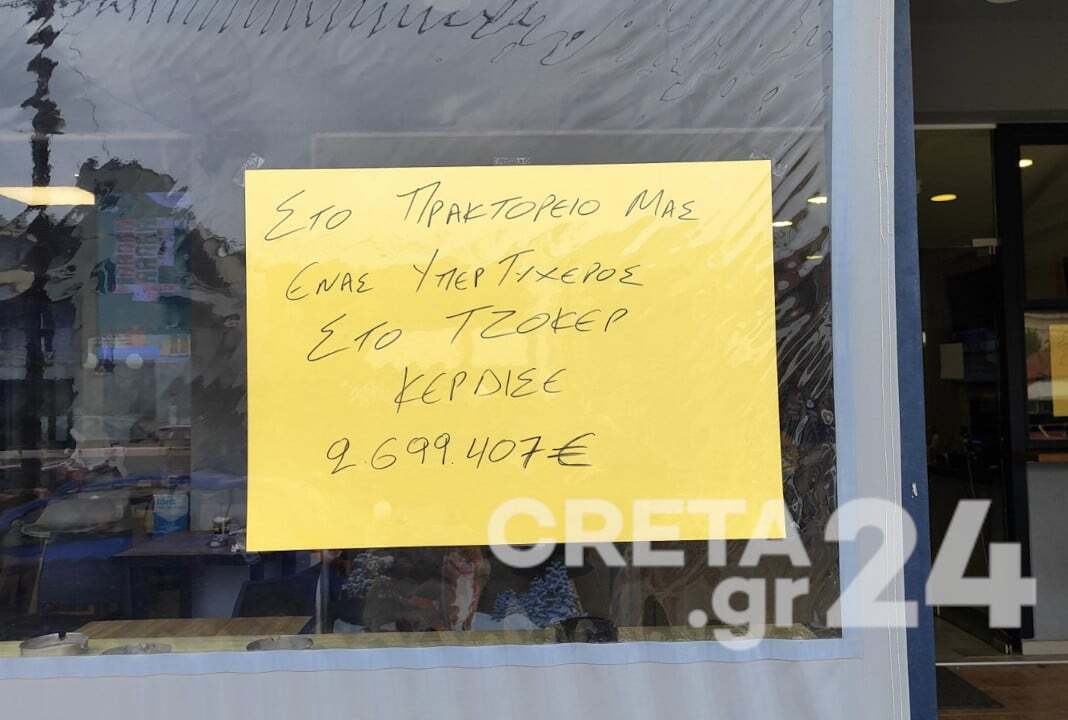 ΣΤΟ ΠΡΑΚΤΟΡΕΙΟ ΜΑΣ
ΕΝΑΣ ΥΠΕΡ ΤΥΧΕΡΟΣ
ΣΤΟ ΤΖΟΚΕΡ
ΚΕΡΔΙΣΕ
2.699.407€
CRETA
.gr 24